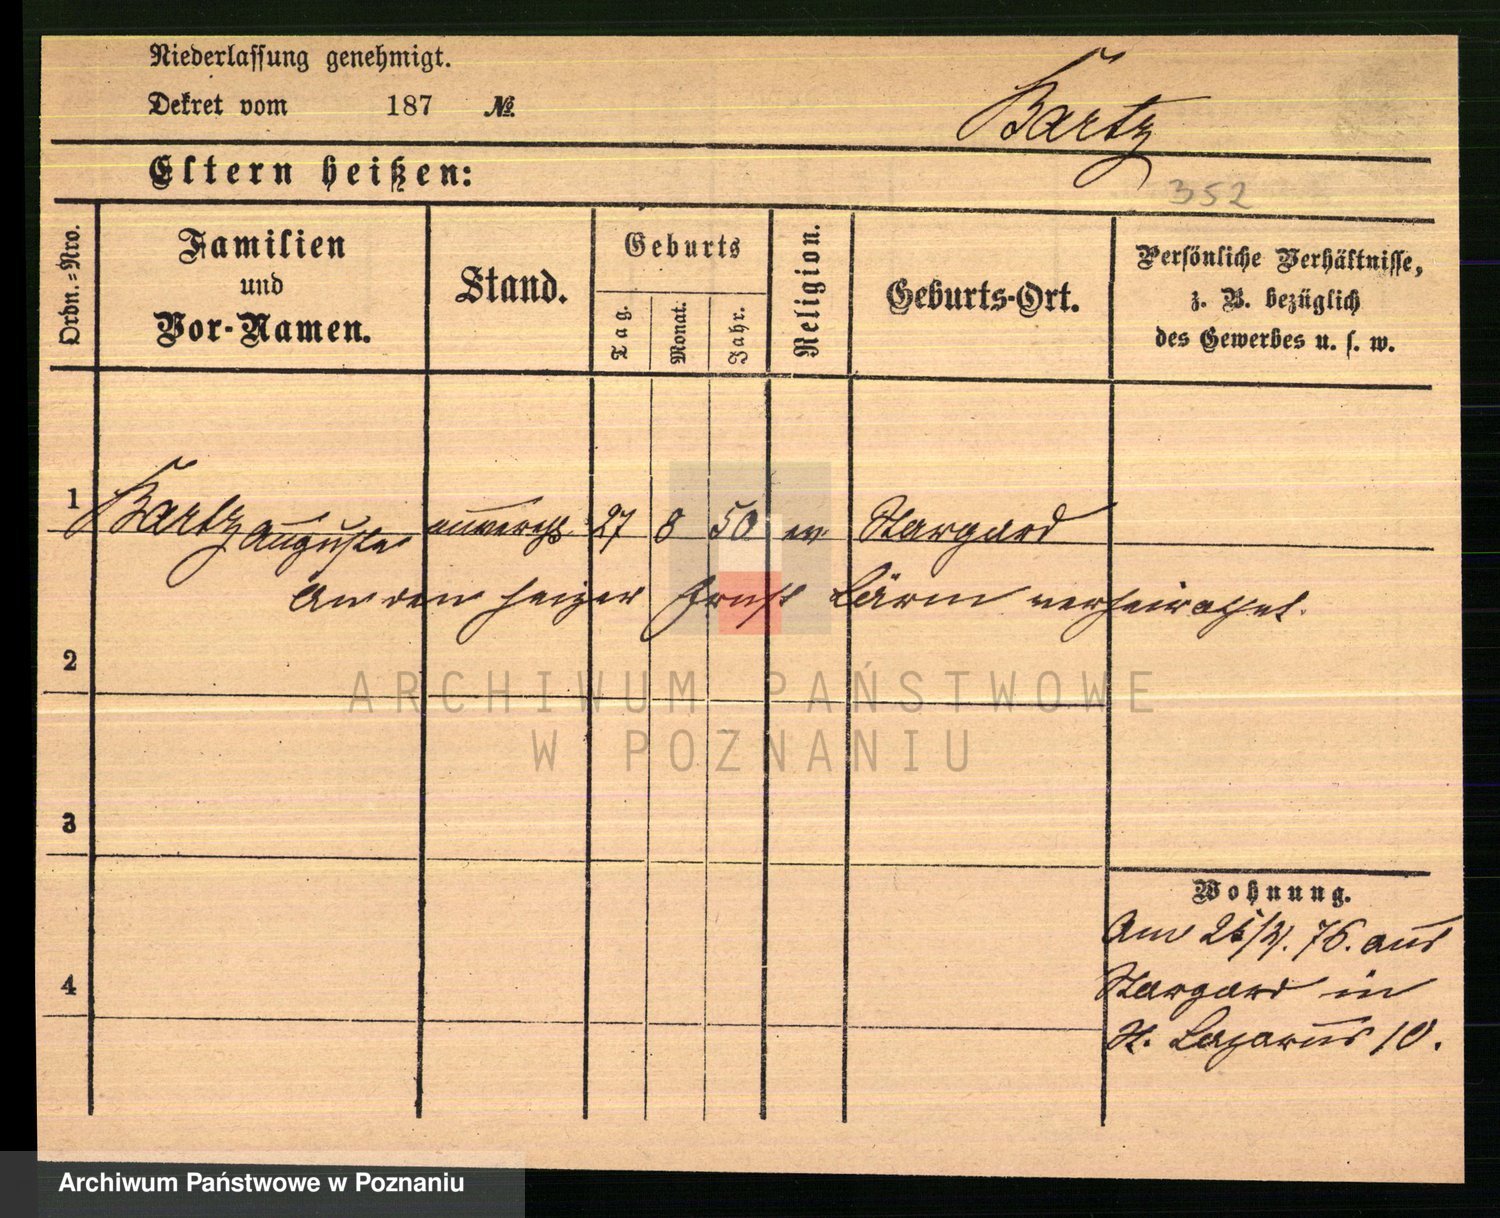 Niederlassung genehmigt.
Dekret vom 187 №
Bartz
Eltern heißen:
352
Ordn.=Nro.
Familien
und
Vor-Namen.
Stand.
Geburts
Tag.
Monat.
Jahr.
Religion.
Geburts-Ort.
Persönliche Verhältnisse,
z. B. bezüglich
des Gewerbes u. s. w.
1 Bartz Auguste unvereh. 27 8 50 ev. Stargard
An den Heizer Ernst Lärm verheirathet.
2
ARCHIWUM PAŃSTWOWE
W POZNANIU
3
Wohnung.
Am 76. aus
4 Stargard in
St. Lazarus 10.
Archiwum Państwowe w Poznaniu